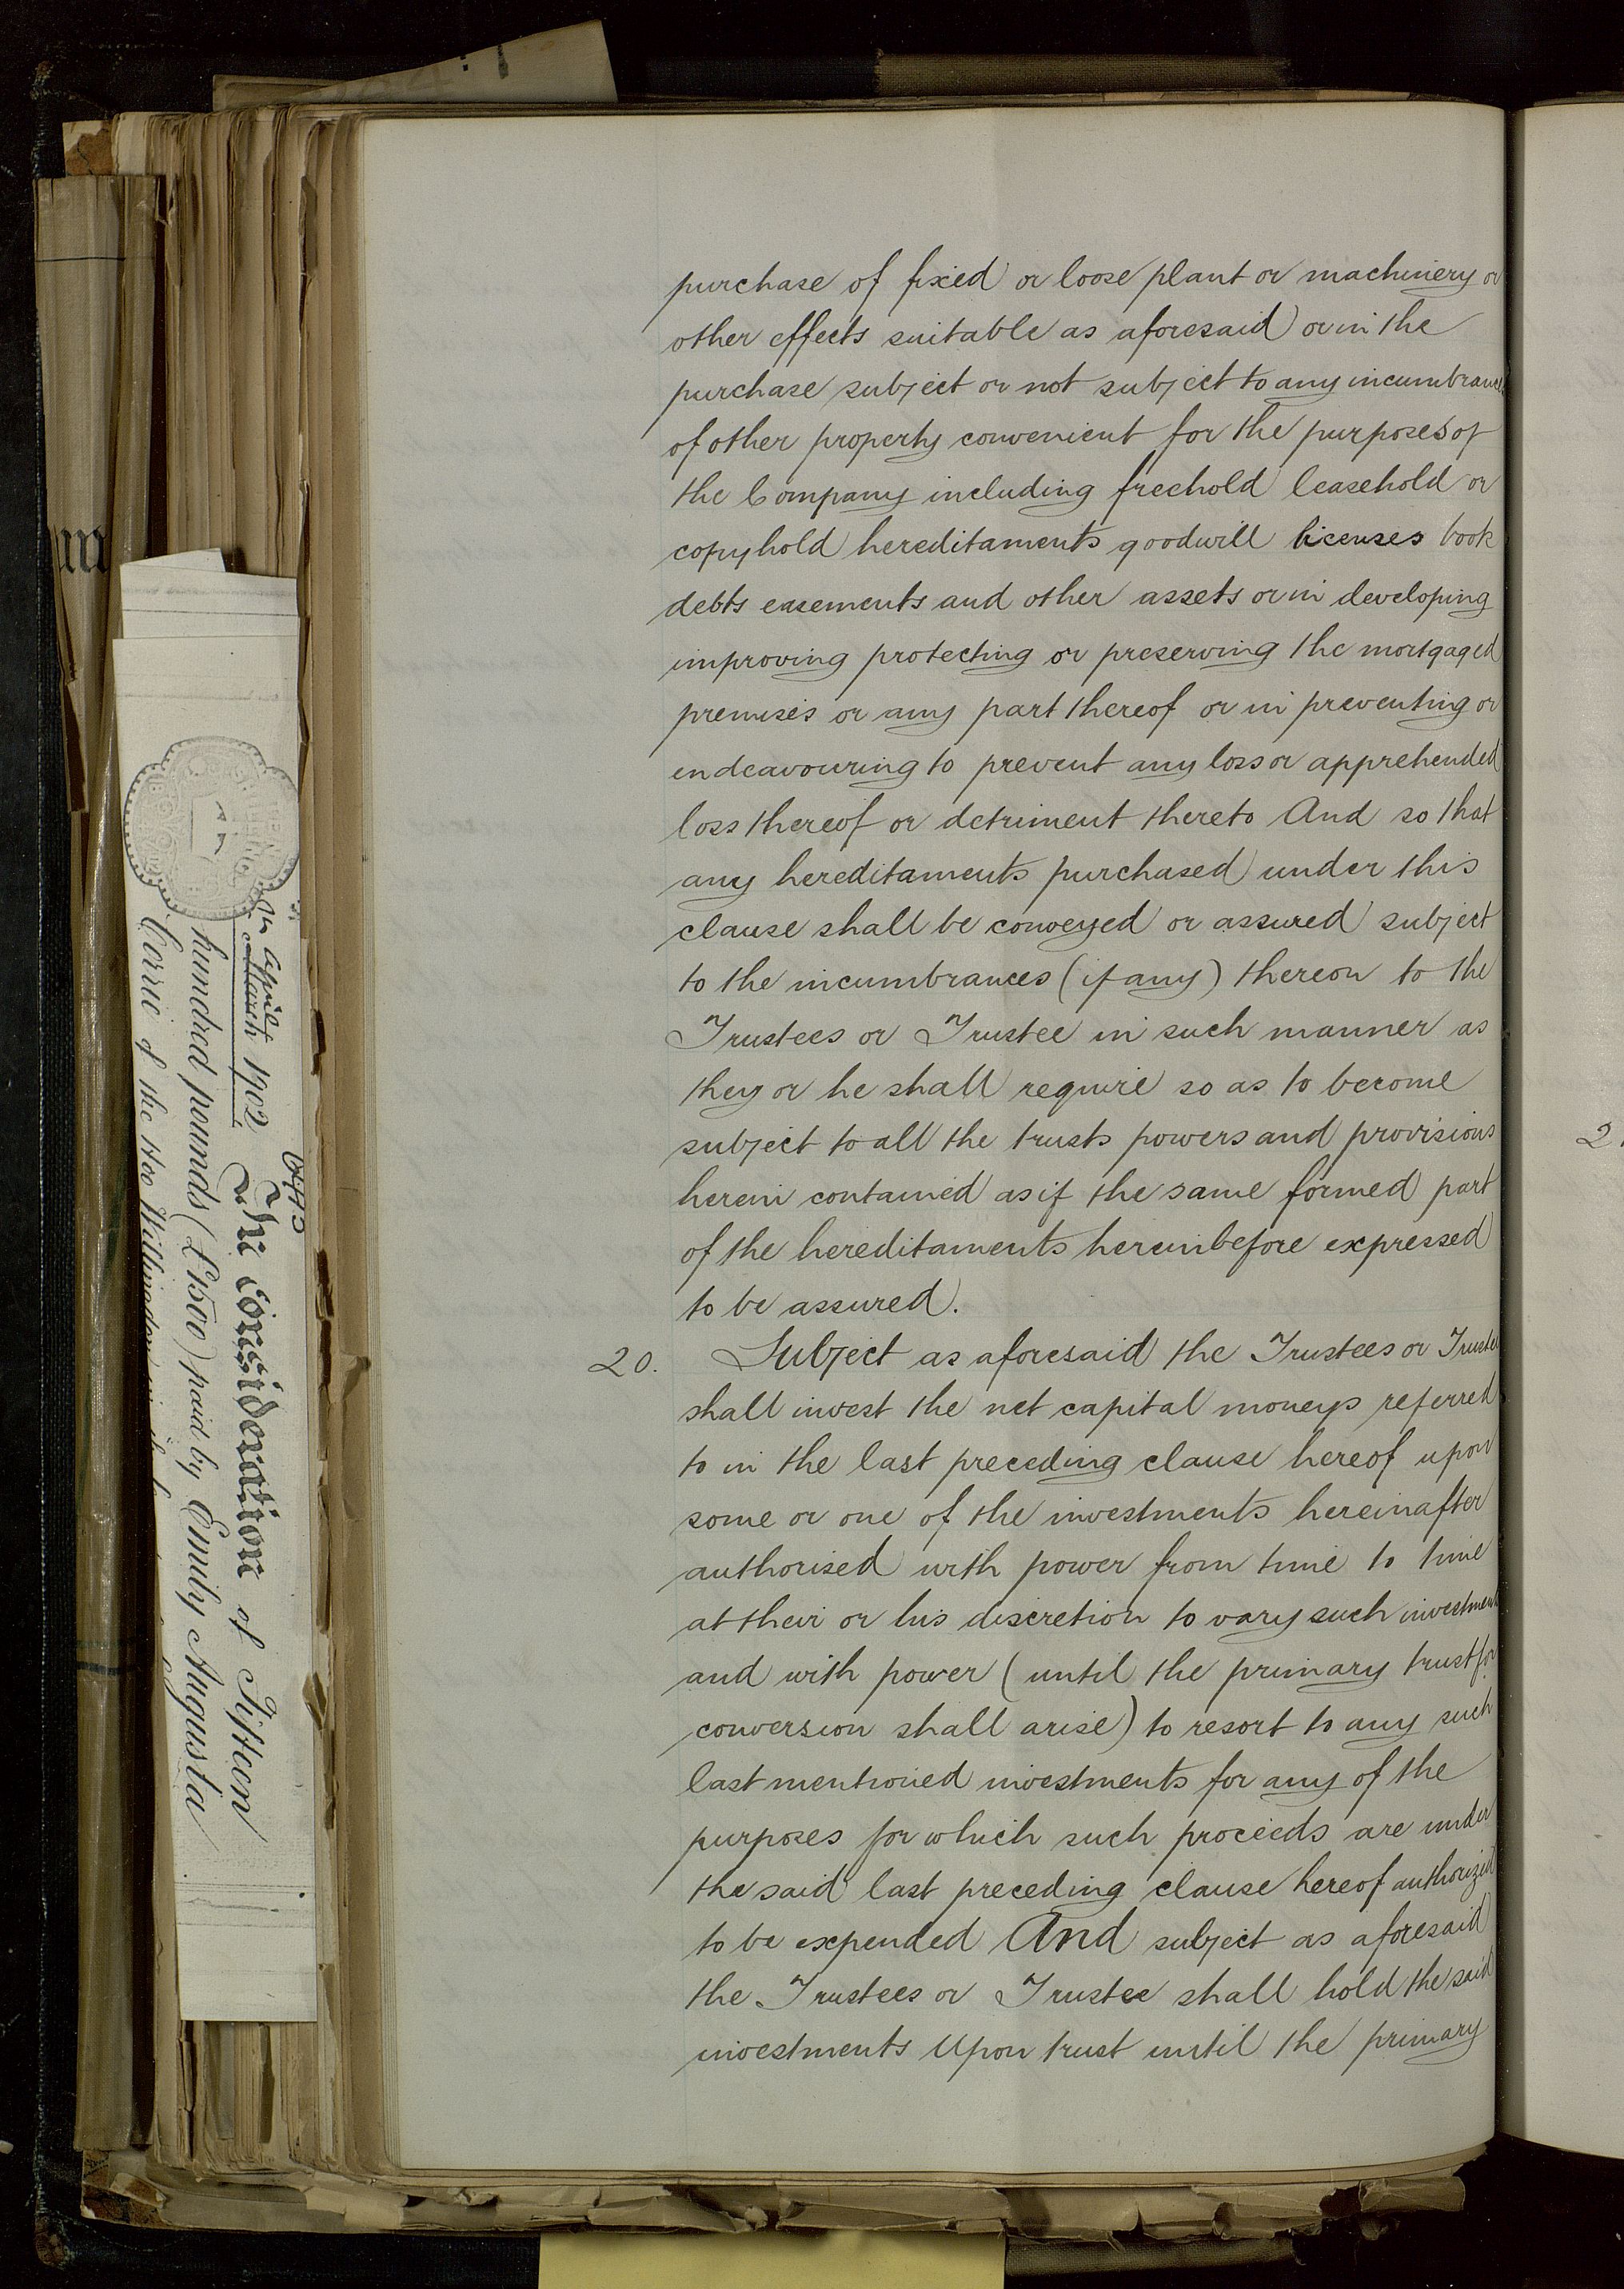 purchase of fixed or loose plant or machinery or
other effects suitable as aforesaid or in the
purchase subject or not subject to any incumbrance
of other property convenient for the purposes of
the Company including freehold leasehold or
copyhold hereditaments goodwill licenses book
debts easements and other assets or in developing
improving protecting or preserving the mortgaged
premises or any part thereof or in preventing or
endeavouring to prevent any loss or apprehended
loss thereof or detriment thereto And so that
any hereditaments purchased under this
clause shall be conveyed or assured subject
to the incumbrances (if any) thereon to the
Trustees or Trustee in such manner as
they or he shall require so as to become
subject to all the trusts powers and provisions
herein contained as if the same formed part
of the hereditaments hereinbefore expressed
to be assured.
20. Subject as aforesaid the Trustees or Trustee
shall invest the net capital moneys referred
to in the last preceding clause hereof upon
some or one of the investments hereinafter
authorised with power from time to time
at their or his discretion to vary such investment
and with power (until the primary trust for
conversion shall arise) to resort to any such
last mentioned investments for any of the
purposes for which such proceeds are under
the said last preceding clause hereof authorized
to be expended And subject as aforesaid
the Trustees or Trustee shall hold the said
investments Upon trust until the primary
2
April
March 1902
In consideration of Fifteen
hundred pounds (£1500) paid by Emily Augusta
Corrie of the Hoo Willingdon